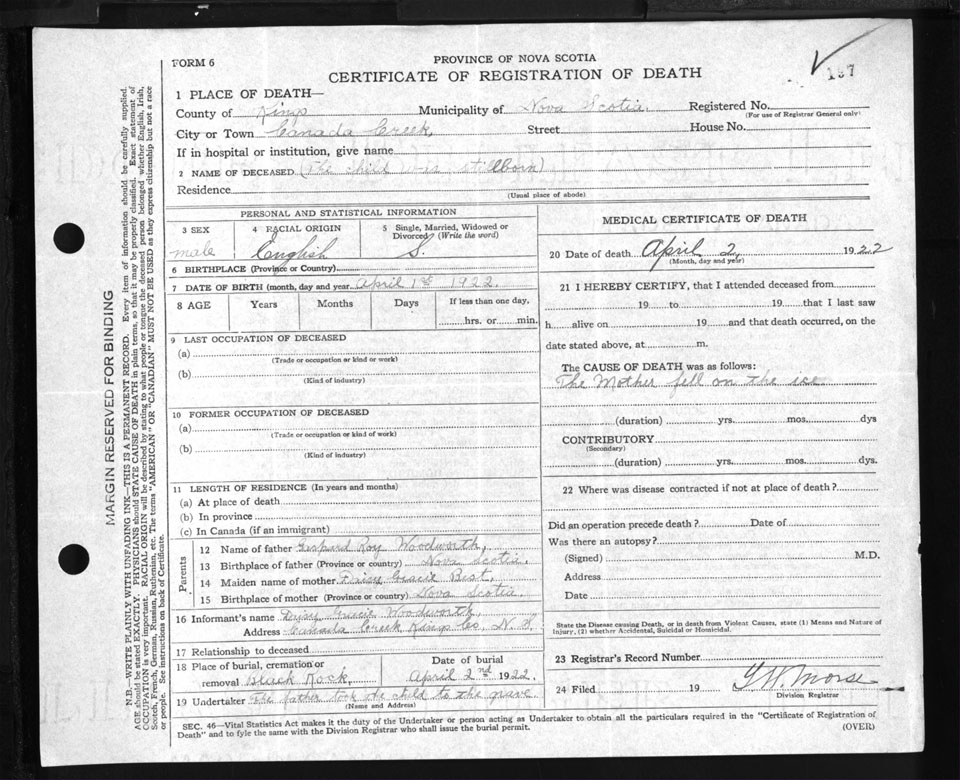 FORM 6
PROVINCE OF NOVA SCOTIA
CERTIFICATE OF REGISTRATION OF DEATH
157
1 PLACE OF DEATH—
County of Kings Municipality of Nova Scotia. Registered No.
(For use of Registrar General only)
City or Town Canada Creek, Street House No.
If in hospital or institution, give name
2 NAME OF DECEASED (The child was stillborn)
Residence
(Usual place of abode)
PERSONAL AND STATISTICAL INFORMATION
3 SEX 4 RACIAL ORIGIN 5 Single, Married, Widowed or Divorced (Write the word)
male English S.
6 BIRTHPLACE (Province or Country)
7 DATE OF BIRTH (month, day and year) April 1st 1922.
8 AGE Years Months Days If less than one day,
hrs. or min.
9 LAST OCCUPATION OF DECEASED
(a)
(Trade or occupation or kind or work)
(b)
(Kind of industry)
10 FORMER OCCUPATION OF DECEASED
(a)
(Trade or occupation or kind of work)
(b)
(Kind of industry)
11 LENGTH OF RESIDENCE (In years and months)
(a) At place of death
(b) In province
(c) In Canada (if an immigrant)
Parents
12 Name of father Roy Woodworth,
13 Birthplace of father (Province or Country) Nova Scotia.
14 Maiden name of mother Daisy Gracie Best,
15 Birthplace of mother (Province or country) Nova Scotia.
16 Informant's name Daisy Gracie Woodworth,
Address Canada Creek Kings Co, N. S.
17 Relationship to deceased
18 Place of burial, cremation or removal Black Rock. Date of burial April 2nd 1922.
19 Undertaker The father took the child to the grave.
(Name and Address)
MEDICAL CERTIFICATE OF DEATH
20 Date of death April 2, 1922
(Month, day and year)
21 I HEREBY CERTIFY, that I attended deceased from
19 to 19 that I last saw
h alive on 19 and that death occurred, on the
date stated above, at m.
The CAUSE OF DEATH was as follows:
The Mother fell on the ice
(duration) yrs. mos. dys
CONTRIBUTORY
(Secondary)
(duration) yrs. mos. dys.
22 Where was disease contracted if not at place of death?
Did an operation precede death? Date of
Was there an autopsy?
(Signed) M.D.
Address
Date
State the Disease causing Death, or in death from Violent Causes, state (1) Means and Nature of
Injury, (2) whether Accidental, Suicidal or Homicidal.
23 Registrar's Record Number
24 Filed 19 Morse
Division Registrar
SEC. 46—Vital Statistics Act makes it the duty of the Undertaker or person acting as Undertaker to obtain all the particulars required in the "Certificate of Registration of
Death" and to fyle the same with the Division Registrar who shall issue the burial permit. (OVER)
MARGIN RESERVED FOR BINDING
N.B.—WRITE PLAINLY WITH UNFADING INK—THIS IS A PERMANENT RECORD. Every item of information should be carefully supplied.
AGE should be stated EXACTLY. PHYSICIANS should STATE CAUSE OF DEATH in plain terms, so that it may be properly classified. Exact statement of
OCCUPATION is very important. RACIAL ORIGIN will be described by stating to what people or tongue the deceased person belonged whether English, Irish,
Scotch, French, German, Russian, Ruthenian, etc. The terms "AMERICAN" OR "CANADIAN" MUST NOT BE USED as they express citizenship but not a race
or people. See instructions on back of Certificate.